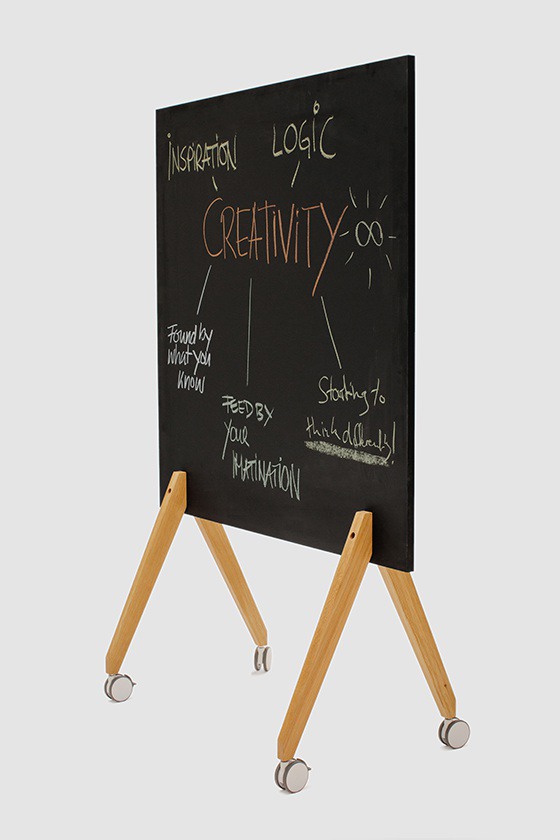 INSPIRATION
LOGIC
CREATIVITY ∞
Found by
what you
know
FEED BY
your
IMATINATION
Starting to
think differently!